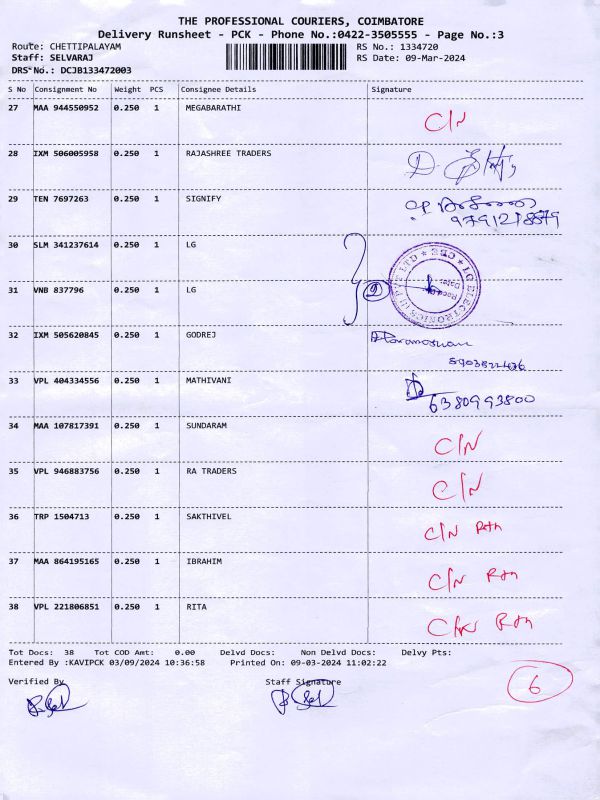 THE PROFESSIONAL COURIERS, COIMBATORE
Delivery Runsheet - PCK - Phone No.:0422-3505555 - Page No.:3
Route: CHETTIPALAYAM RS No.: 1334720
Staff: SELVARAJ RS Date: 09-Mar-2024
DRS No.: DCJB133472003
S No Consignment No Weight PCS Consignee Details Signature
27 MAA 944550952 0.250 1 MEGABARATHI C/N
28 IXM 506005958 0.250 1 RAJASHREE TRADERS
29 TEN 7697263 0.250 1 SIGNIFY
9791218879
30 SLM 341237614 0.250 1 LG
LG ELECTRONICS PVT LTD * CBE *
31 VNB 837796 0.250 1 LG 2
32 IXM 505620845 0.250 1 GODREJ
33 VPL 404334556 0.250 1 MATHIVANI
6380993800
34 MAA 107817391 0.250 1 SUNDARAM C/N
35 VPL 946883756 0.250 1 RA TRADERS C/N
36 TRP 1504713 0.250 1 SAKTHIVEL C/N Rtn
37 MAA 864195165 0.250 1 IBRAHIM C/N Rtn
38 VPL 221806851 0.250 1 RITA C/N Rtn
Tot Docs: 38 Tot COD Amt: 0.00 Delvd Docs: Non Delvd Docs: Delvy Pts:
Entered By :KAVIPCK 03/09/2024 10:36:58 Printed On: 09-03-2024 11:02:22
Verified By Staff Signature 6